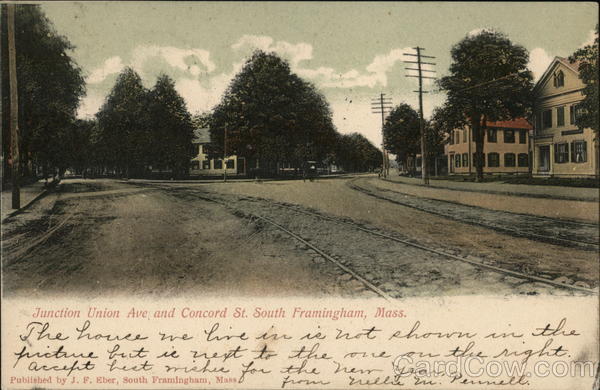 Junction Union Ave. and Concord St. South Framingham, Mass.
The house we live in is not shown in the
picture but is next to the one on the right.
Accept best wishes for the new Year
Published by J. F. Eber, South Framingham, Mass. from Nellie M.
CardCow.com